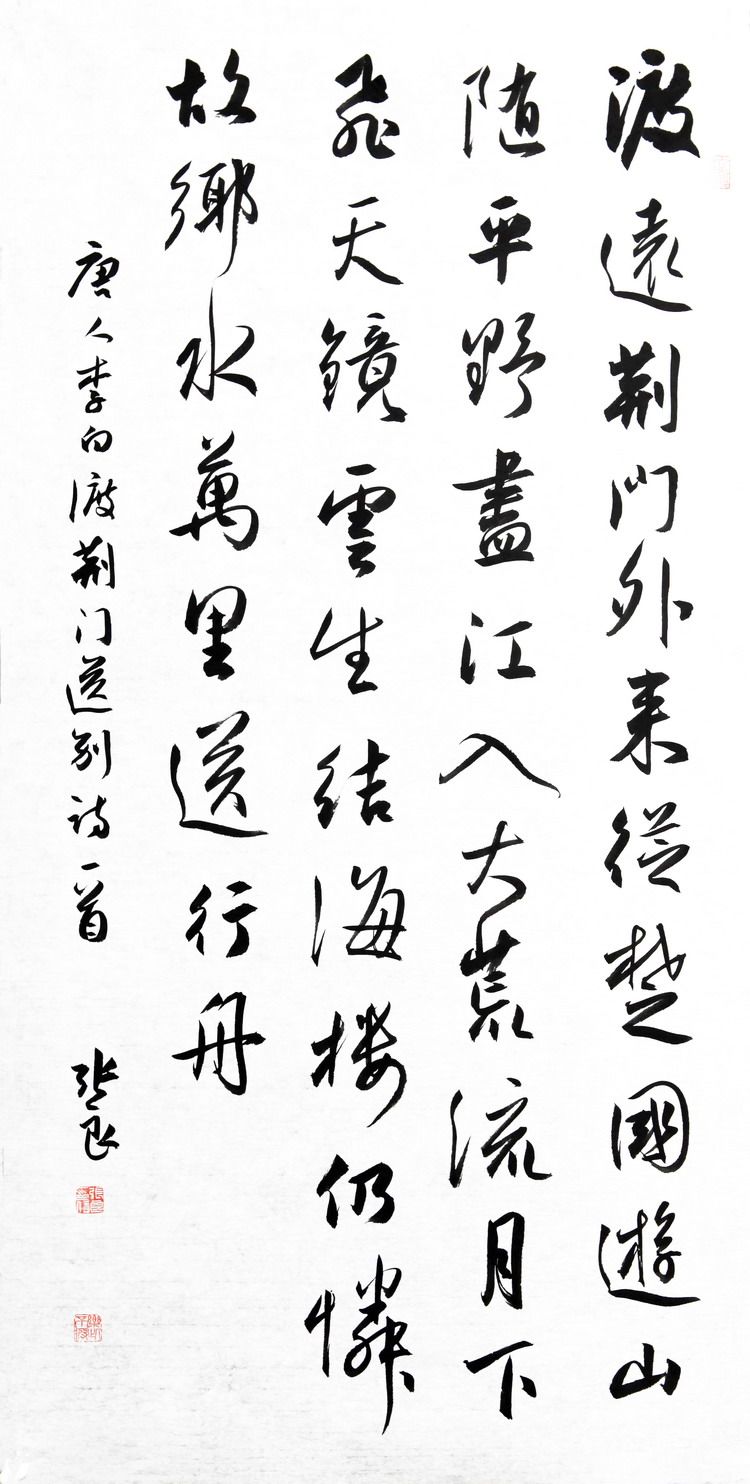 渡遠荊門外来從楚國遊山
随平野盡江入大荒流月下
飛天鏡雲生結海楼仍憐
故鄉水萬里送行舟
唐人李白渡荊门送别诗一首
張良